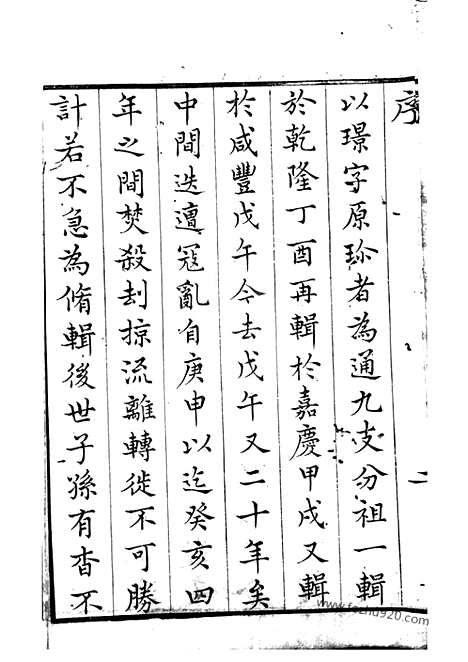 序
二
以璟字原珎者為通九支分祖一輯
於乾隆丁酉再輯於嘉慶甲戌又輯
於咸豐戊午今去戊午又二十年矣
中間迭遭寇亂自庚申以迄癸亥四
年之間焚殺刦掠流離轉徙不可勝
計若不急為脩輯後世子孫有杳不